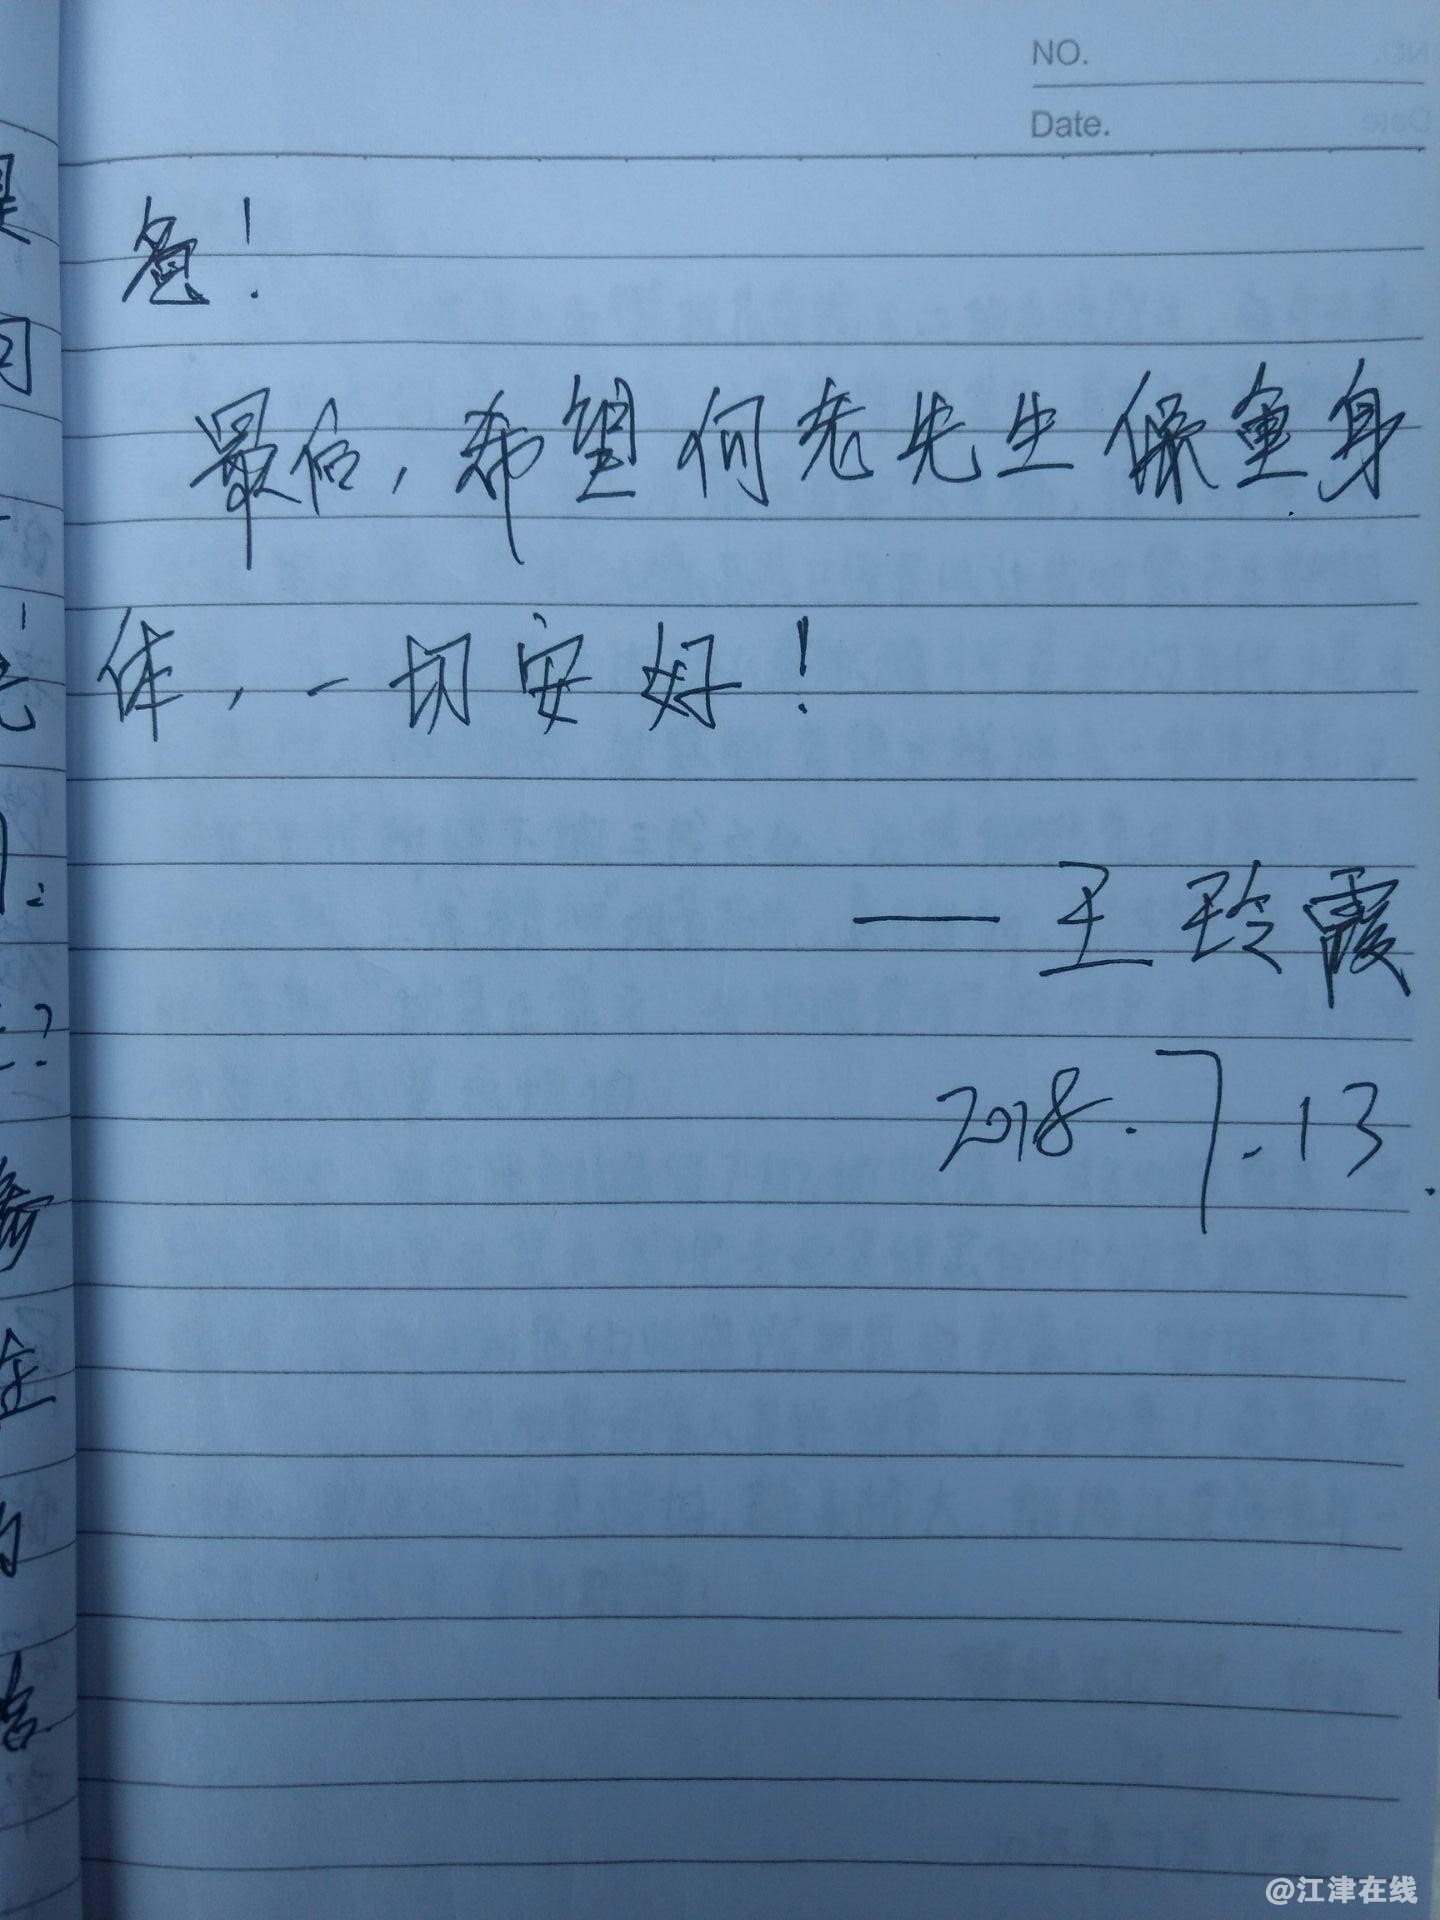 NO.
Date.
爸!
最后,希望何老先生保重身
体,一切安好!
——王玲霞
2018.7.13
@江津在线